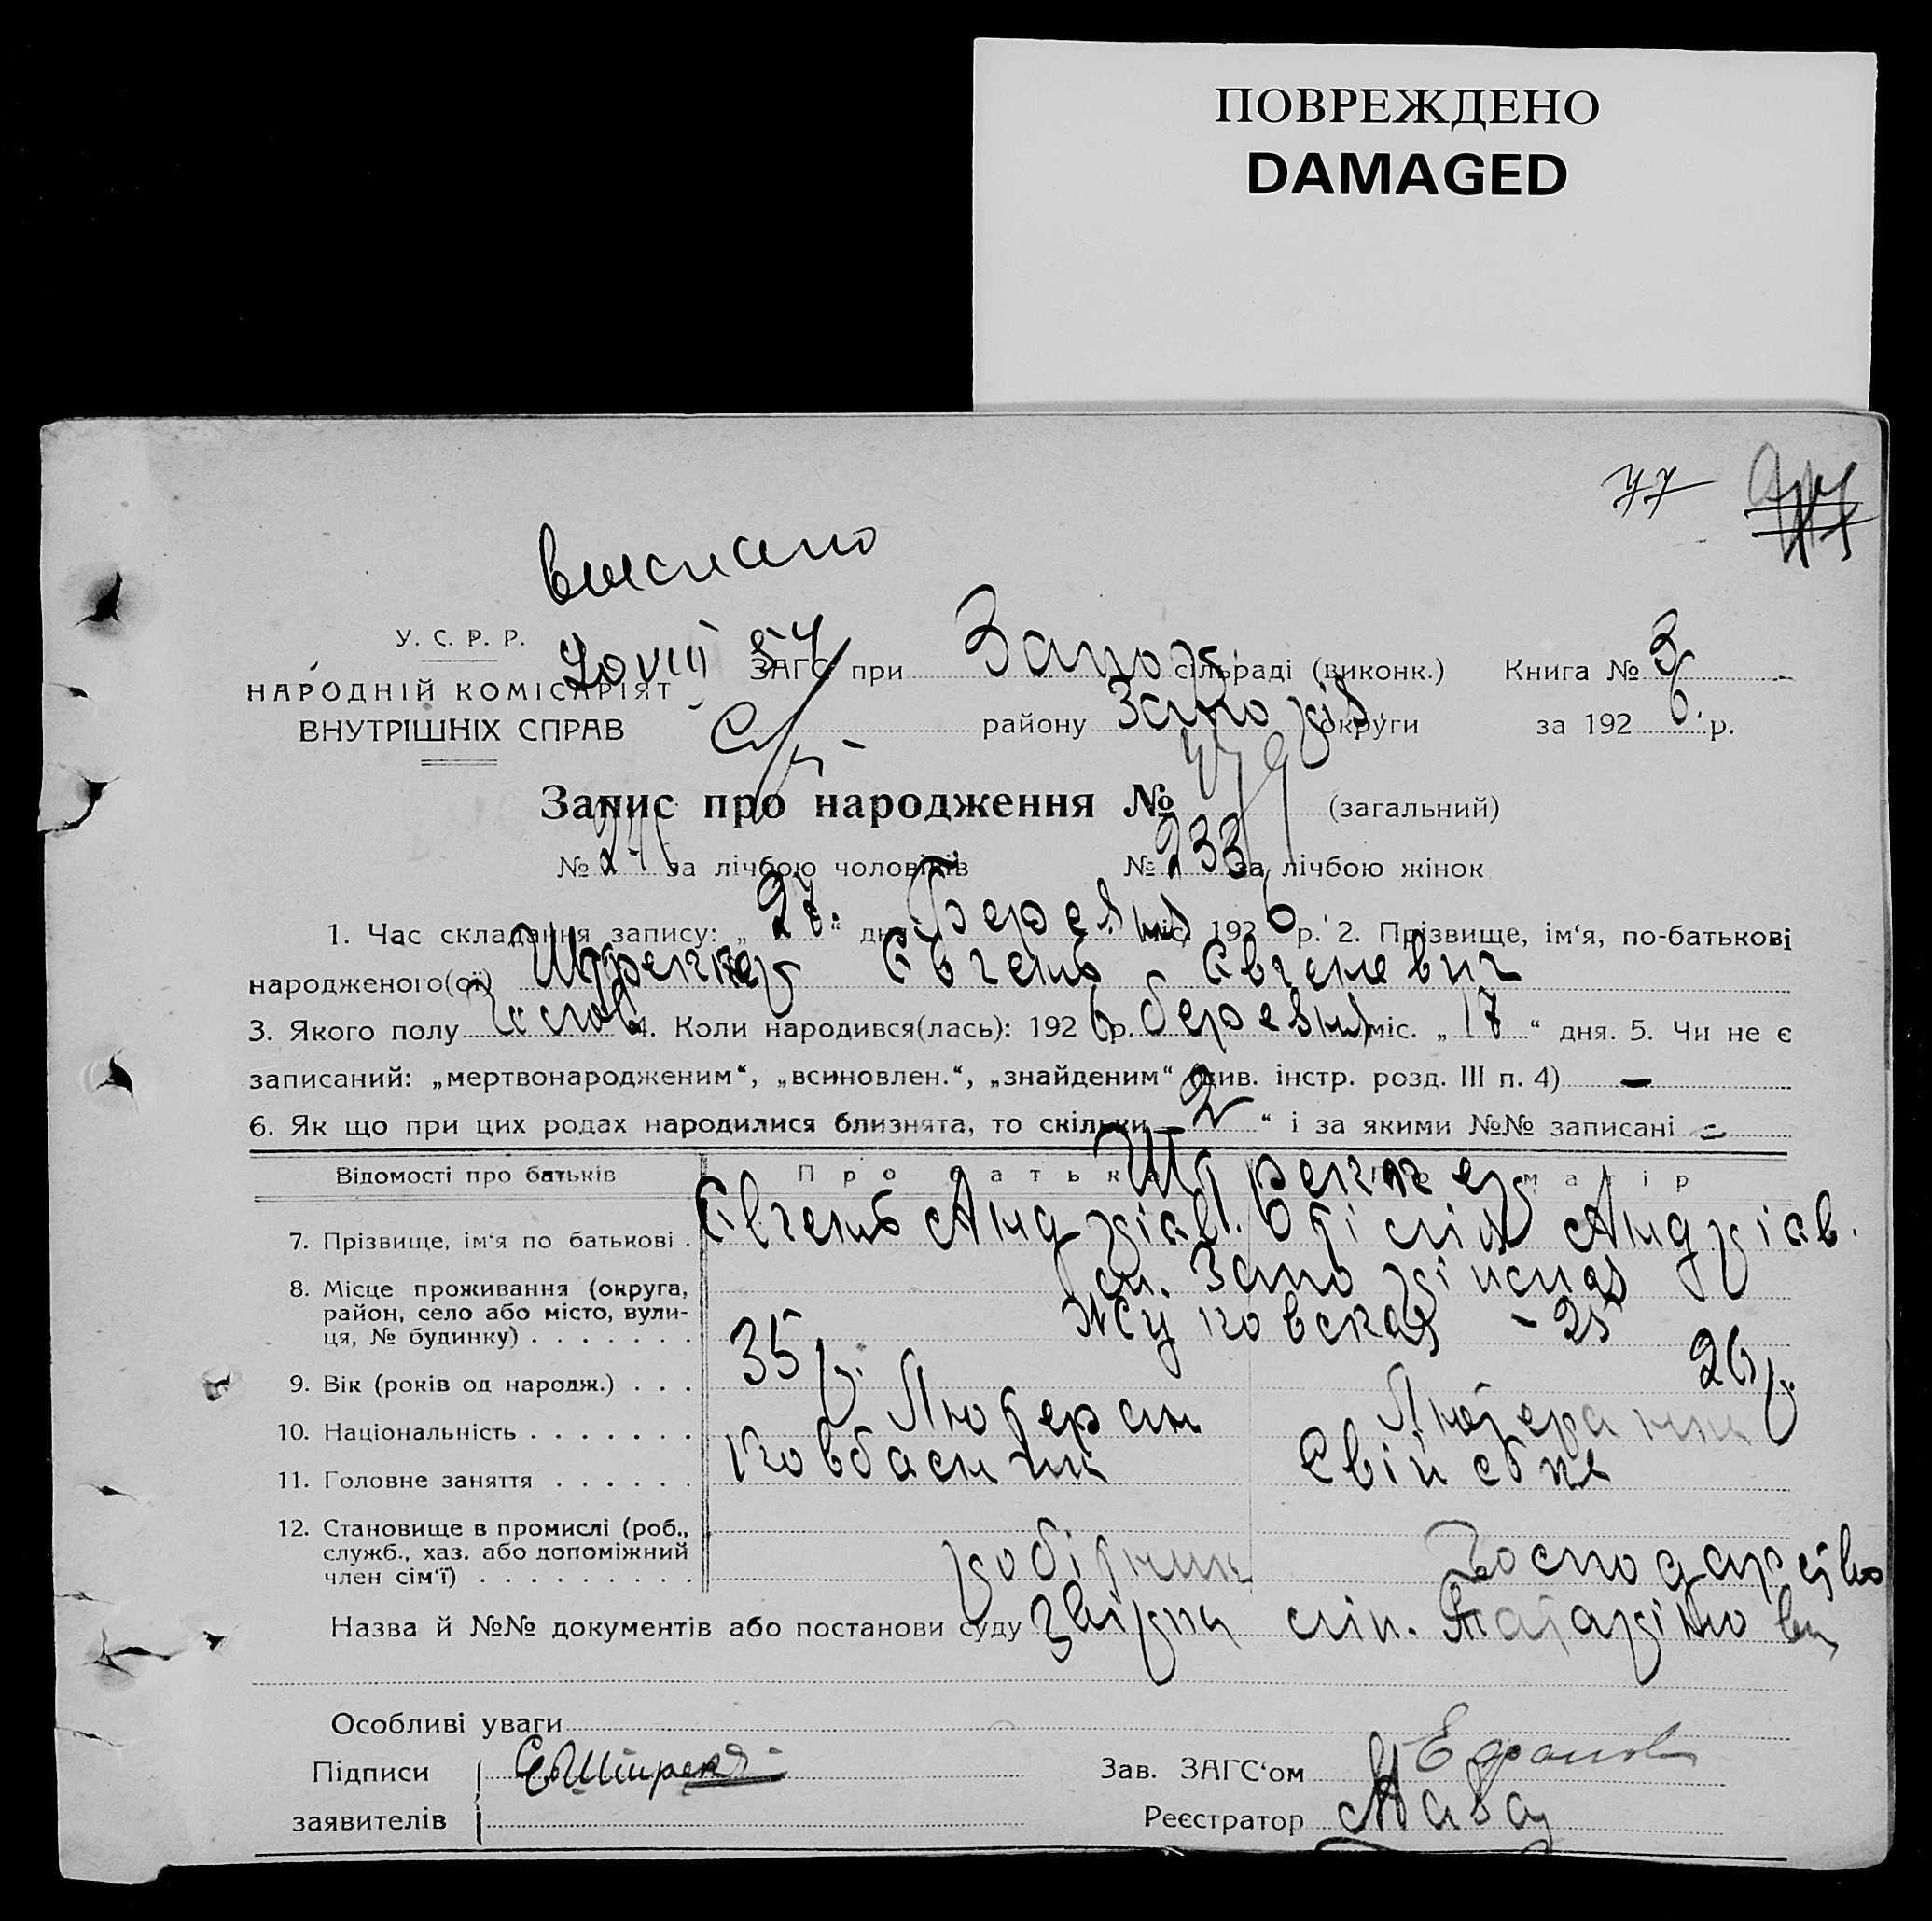 ПОВРЕЖДЕНО
DAMAGED
77
выслано
У. С. Р. Р.
НАРОДНІЙ КОМІСАРІЯТ
ВНУТРІШНІХ СПРАВ
ЗАГС при Запор. сільраді (виконк.) Книга № 3
району Запоріз. округи за 1926 р.
Запис про народження № 479 (загальний)
№ за лічбою чоловіків № 233 за лічбою жінок
1. Час складання запису: „27“ дня Березня міс. 1926 р. 2. Прізвище, ім‘я, по-батькові
народженого(ої) Штреккер Євгень Євгеневич
3. Якого полу чолов 4. Коли народився(лась): 1926 р. березня міс. „17“ дня. 5. Чи не є
записаний: „мертвонародженим“, „всиновлен.“, „знайденим“ (див. інстр. розд. III п. 4) —
6. Як що при цих родах народилися близнята, то скільки 2 “ і за якими №№ записані –
Відомості про батьків Про батька матір
Штреккер
7. Прізвище, ім‘я по батькові . Євгень Андріав. Андріав.
8. Місце проживання (округа,
район, село або місто, вули-
ця, № будинку) . . . . . . .
Жуковская – 25
9. Вік (років од народж.) . . . 35 р. 26 р.
10. Національність . . . . . . . Лютеран Лютеранка
11. Головне заняття . . . . . . Ковбасник
12. Становище в промислі (роб.,
служб., хаз. або допоміжний
член сім‘ї) . . . . . . . . . робітник господарство
Назва й №№ документів або постанови суду
Особливі уваги
Підписи
заявителів
Зав. ЗАГС‘ом
Реєстратор